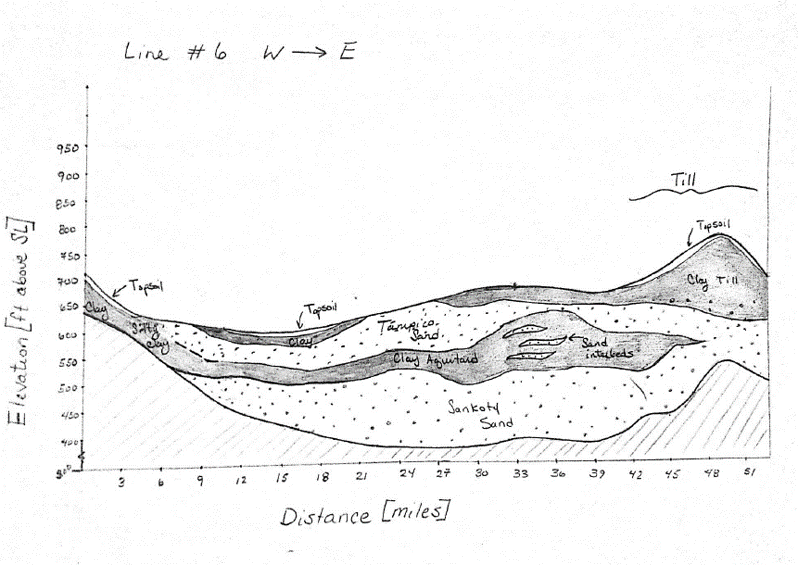 Line #6 W → E
Elevation [ft above SL]
950
900
850
800
750
700
650
600
550
500
450
400
Till
Topsoil
Clay Till
Topsoil
Clay
Silty
Clay
Topsoil
Clay
Tampico
Sand
Clay Aquitard
Sand
interbeds
Sankoty
Sand
3 6 9 12 15 18 21 24 27 30 33 36 39 42 45 48 51
Distance [miles]